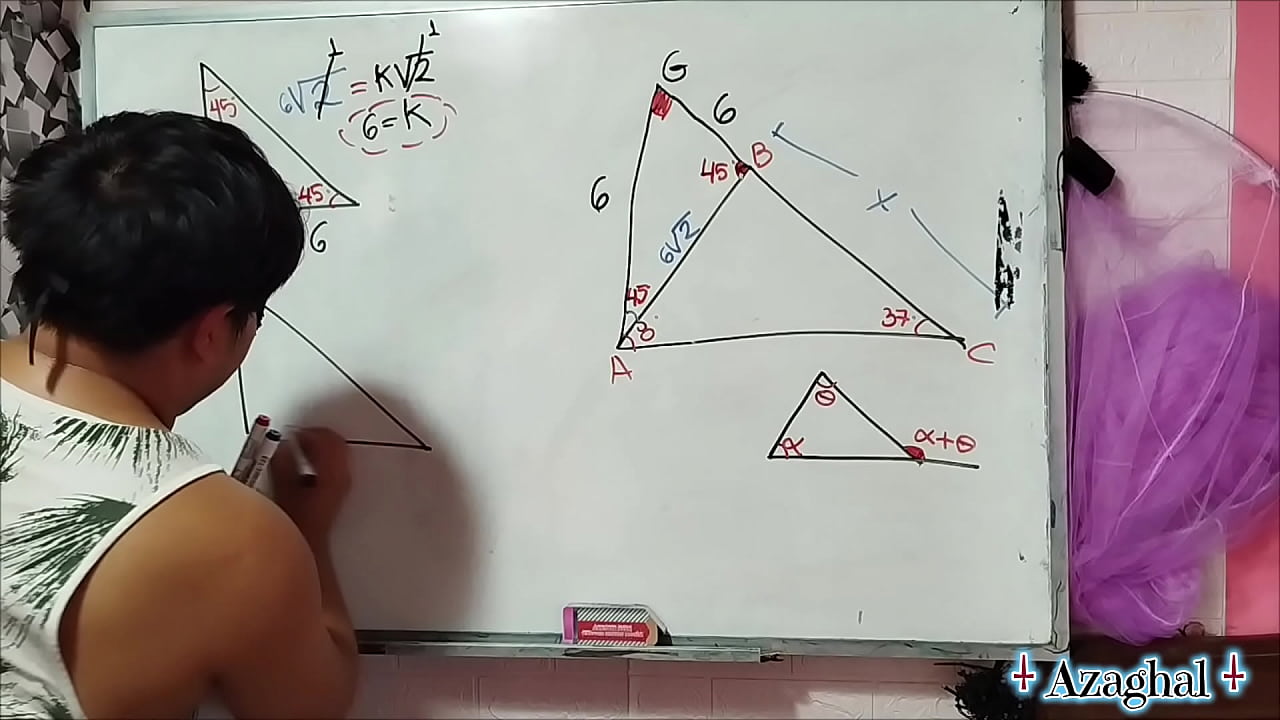 45
6√2 = K√2
1
1
6 = K
45
6
G
6
45
B
6
x
6√2
45
8
37
A
C
θ
α
α+θ
Azaghal